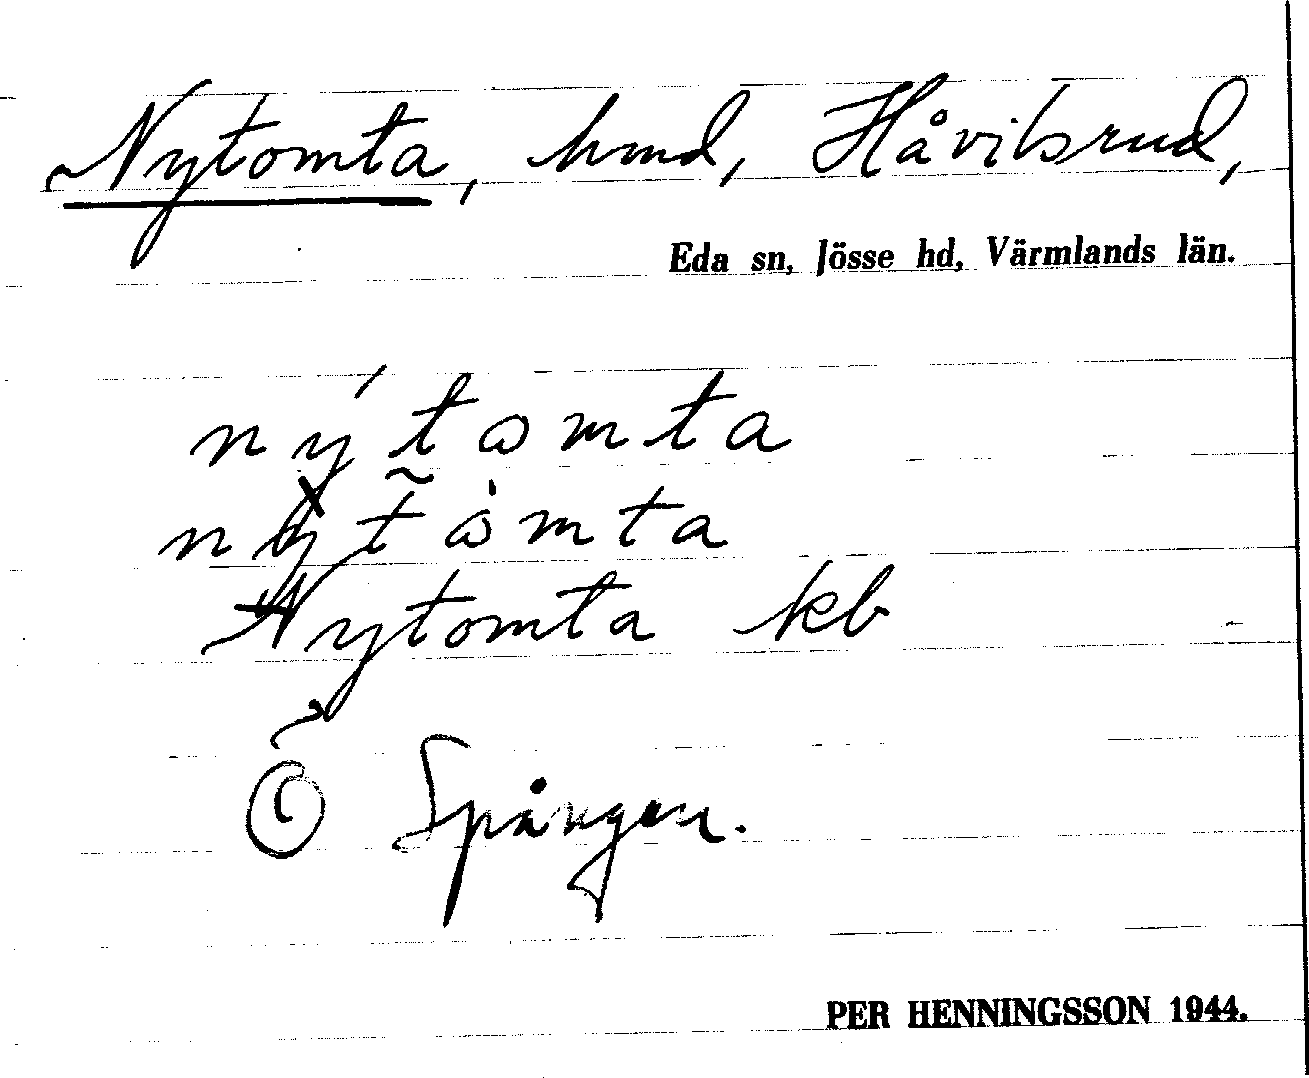 Nytomta, hmd, Håvilsrud,
Eda sn, Jösse hd, Värmlands län.
nýtomta
nỳtòmta
Nytomta kb
Spången.
PER HENNINGSSON 1944.